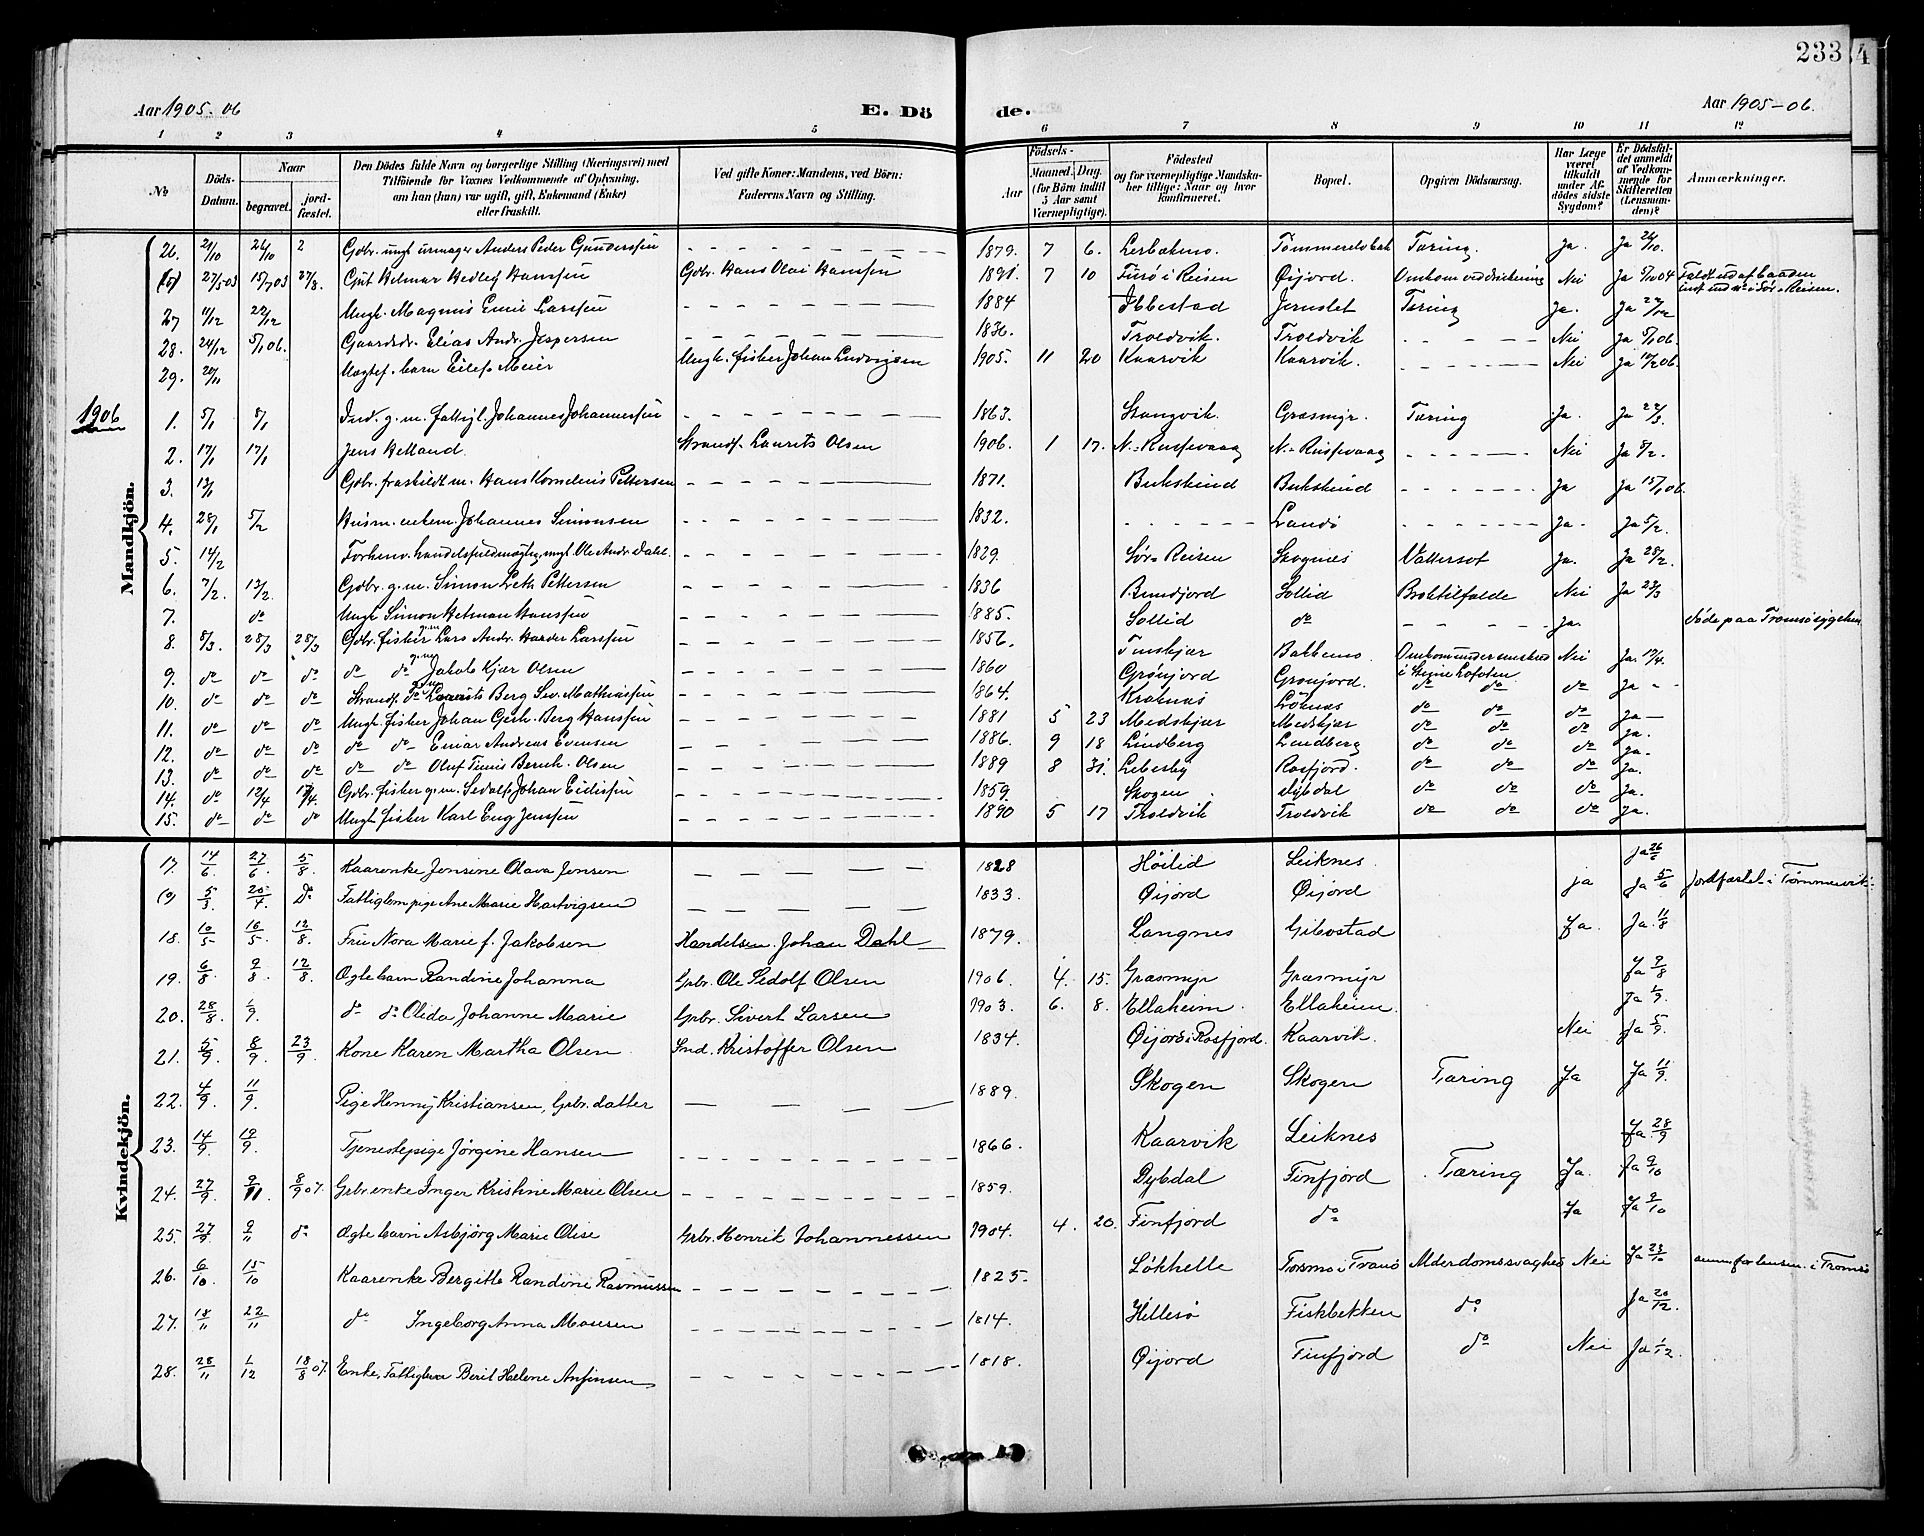 233
4
Aar 1905-06
E. Dö
de.
Aar 1905-06.
1 2 3 4 5 6 7 8 9 10 11 12
№
Döds-Datum.
Naar
begravet.
jord-fæstet.
Den Dödes fulde Navn og borgerlige Stilling (Næringsvei) med
Tilföiende for Voxnes Vedkommende af Oplysning,
om han (hun) var ugift, gift, Enkemand (Enke)
eller fraskilt.
Ved gifte Koner: Mandens, ved Börn:
Faderens Navn og Stilling.
Födsels-
Aar
Maaned. Dag.
(for Börn indtil
5 Aar samt
Værnepligtige).
Födested
og for værnepligtige Mandska-
ber tillige: Naar og hvor
konfirmeret.
Bopæl.
Opgiven Dödsaarsag.
Har Læge
været
tilkaldt
under Af-
dödes sidste
Sygdom?
Er Dödsfal-
det anmeldt
af Vedkom-
mende for
Skifteretten
(Lensman-
den)?
Anmærkninger.
Mandkjön.
26. 21/10 26/10 2 Gdbr. ungk. urmager Anders Peder Gunderssen 1879. 7 6. Lerbakmo. Tømmerelvbak Tæring. Ja. Ja 26/10.
27/5 03 15/7 03 27/8. Gut Helmar Hedley Hanssen Gdbr. Hans Olai Hanssen 1891. 7 10 i Reisen Øijord. Omkom ved drukning Nei Ja 5/1 04 Faldt ud af baaden
i Sör-Reisen.
27 11/12 22/12 Ungk. Magnus Emil Larssen 1884 Ibbestad Jernslet Tæring Ja. Ja 27/12
28. 24/12 5/1 06. Gaardbr. Elias Andr. Jespersen 1836. Troldvik. Troldvik Nei Ja 5/1 06.
29. 20/11 Uægtef. barn Eilef Meier Ungk. fisker Johan Ludvigsen 1905. 11 20 Kaarvik Kaarvik. Nei Ja 10/2 06.
1906
1. 5/1 8/1 Ind. g. m. fattigl. Johannes Johannessen 1863. Stangvik. Græsmyr. Tæring Ja. Ja 22/3.
2. 17/1 17/1 Jens Helland. Strands. Laurits Olsen 1906. 1 17. N.-Russevaag N.-Russevaag Nei Ja 8/2.
3. 13/1 Gdbr. fraskildt m. Hans Kornelius Pettersen 1871. Bukskind Bukskind Ja Ja 15/1 06.
4. 28/1 5/2 Husm. enkem. Johannes Simonsen 1832. Landö Ja. Ja 5/2.
5. 14/2 Forhenv. handelsfuldmægtig, ungk. Ole Andr. Dahl. 1829. Sör-Reisen Skognes Vattersot Ja. Ja 28/2.
6. 7/2. 12/2. Gdbr. g. m. Simon Leth Pettersen 1836 Bundjord Sollid Broktilfælde Nei Ja 23/3
7. do Ungk. Simon Hetman Hanssen 1885. Sollid do Ja. Döde paa Tromsö sygehus
8. 8/3. 28/3 28/3 Gdbr. fisker gm Lars Andr. Harder Larssen 1856. Finskjær Bakkemo. Omkom under Nei Ja. 17/4.
9. do do do do do gm Jakob Kjær Olsen 1860 Grönjord Grønjord. i Lofoten
10. do do do Strands. do Laurits Berg Sev. Mathiassen 1864. Kraknæs Löknæs do do do Ja
11. do do do Ungk. fisker Johan Gerh. Berg Hanssen 1881 5 23 Medskjær Medskjær do do do Ja
12. do do do do do Einar Andreas Evensen 1886. 9 18 Lindberg Lindberg do do do Ja.
13. do do do do do Oluf Tinus Bernh. Olsen 1889 8 31. Lebesby Rosfjord. do do do Ja.
14. do 12/4 17/4. Gdbr. fisker g. m. Sedolf Johan Eidissen 1859. Skogen Dybdal do do do Ja.
15. do do do Ungk. fisker Karl Eug. Jenssen 1890 5 17 Troldvik Troldvik do do do Ja.
Kvindekjön.
17. 14/6. 27/6. 5/8. Kaarenke Jensine Olava Jensen 1828 Høilid Leiknes. Ja 26/6
5/3. 20/4. Do Fattiglem pige Ane Marie Hartvigsen 1833. Øijord Øijord ja Ja 5/6 Jordfæstet i Tømmervik.
18. 10/5 16/5. 12/8. Frue Nora Marie f. Jakobsen Handelsm. Johan Dahl 1879. Langnes Gibostad Ja. Ja. 11/8
19. 6/8. 9/8. 12/8. Ægte barn Randine Johanna Grbr. Ole Sedolf Olsen 1906. 4. 15. Græsmyr Græsmyr Ja 9/8
20. 28/8. 1/9. do do Olida Johanne Marie Grbr. Sivert Larsen 1903. 6. 8. Ellaheim. Ellaheim. Ja 1/9.
21. 5/9. 8/9. 23/9. Kone Karen Martha Olsen. Ind. Kristoffer Olsen 1834. Øijord i Rosfjord. Kaarvik. Nei Ja 5/9.
22. 4/9. 11/9. Pige Henny Kristiansen, Grbr. datter 1889. Skogen Skogen Tæring Ja Ja 11/9.
23. 14/9. 19/9. Tjenestepige Jörgine Hansen 1866. Kaarvik Leiknes Ja 28/9
24. 27/9. 9/11. 8/9 07. Grbr. enke Inger Kristine Marie Olsen 1859. Dybdal Finfjord Tæring Ja. Ja 9/10
25. 27/9. 9/11 do Ægte barn Asbjörg Marie Olise Grbr. Henrik Johannessen 1904. 4. 20. Finfjord do Ja Ja 9/10
26. 6/10. 15/10 Kaarenke Bergitte Randine Rasmussen 1825. Løkhelle Forsmo i Tranö Alderdomssvaghed Nei Ja 23/10 i Tromsö
27. 18/11 22/11 do Ingeborg Anna Mosesen 1814. Hillesø Fiskbekken do Ja 20/12.
28. 28/11 1/12 18/8 07. Enke, Fattiglem Berit Helene Anfinsen 1818. Øijord Finfjord do Nei Ja 1/12.